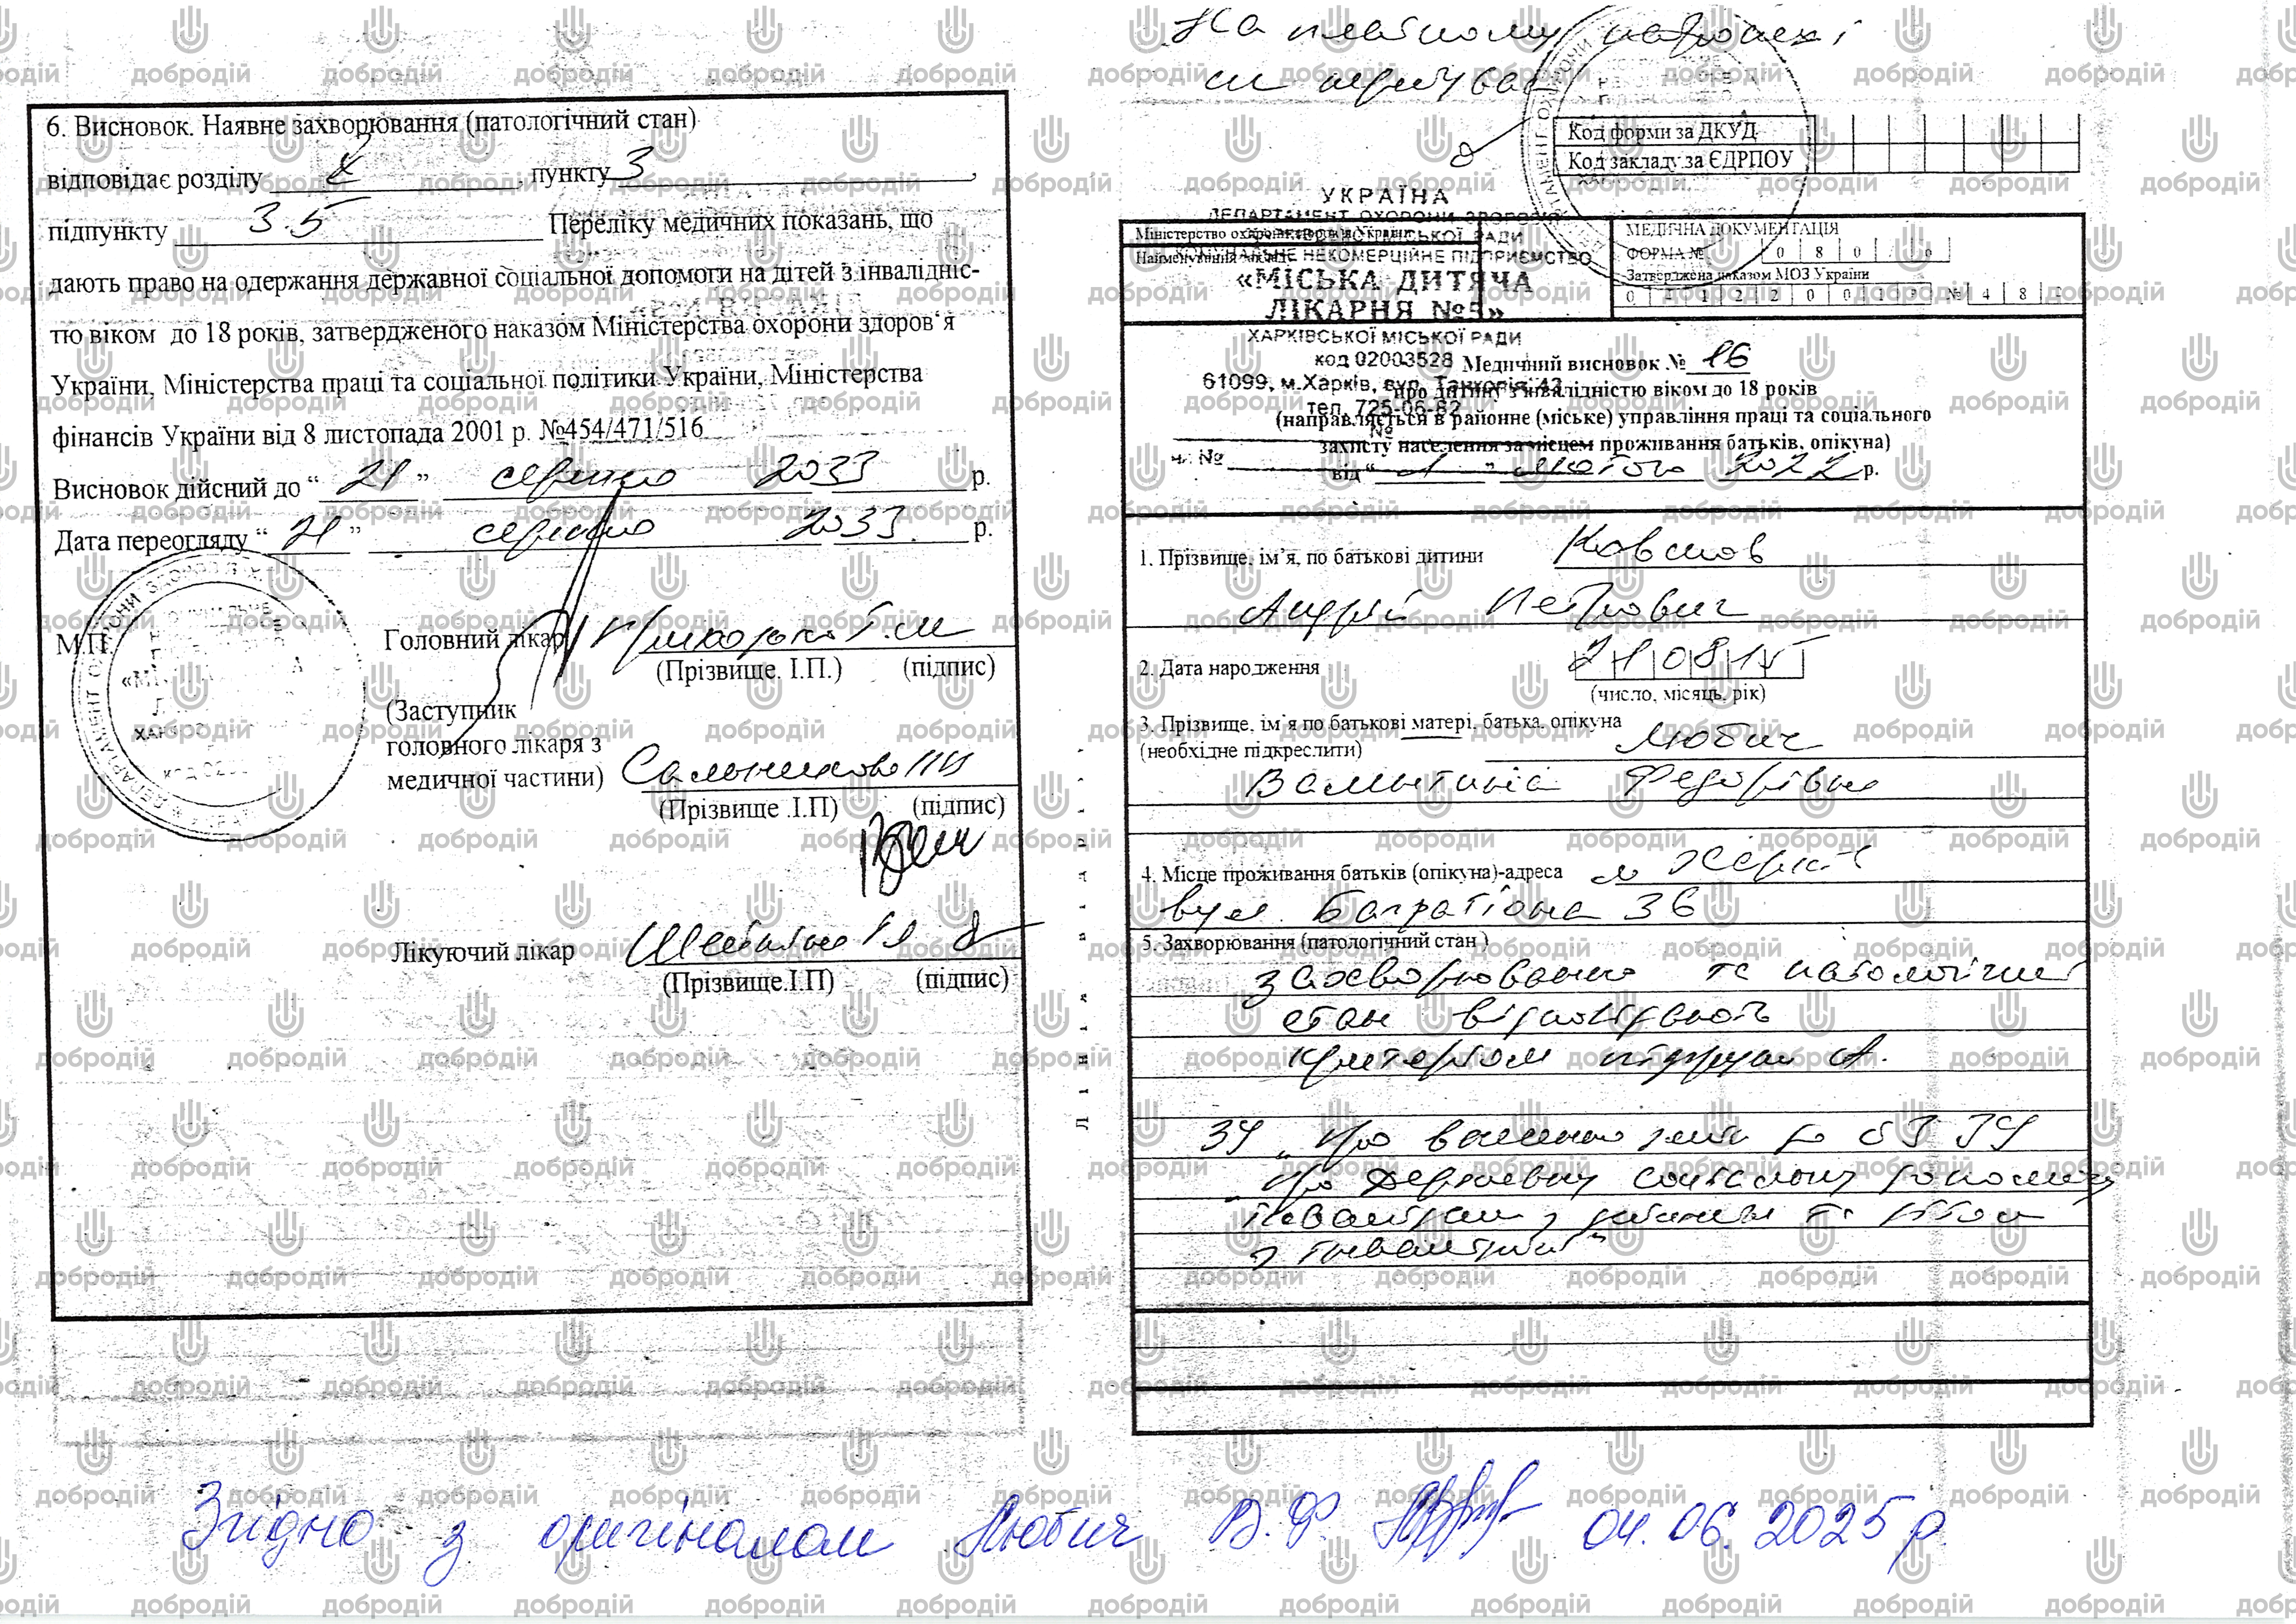 6. Висновок. Наявне захворювання (патологічний стан)
відповідає розділу , пункту 3 ,
підпункту 3.5 Переліку медичних показань, що
дають право на одержання державної соціальної допомоги на дітей з інвалідніс-
тю віком до 18 років, затвердженого наказом Міністерства охорони здоров'я
України, Міністерства праці та соціальної політики України, Міністерства
фінансів України від 8 листопада 2001 р. №454/471/516
Висновок дійсний до “ 21 ” серпня 2033 р.
Дата переогляду “ 21 ” серпня 2033 р.
М.П.
Головний лікар
(Прізвище. І.П.) (підпис)
(Заступник
головного лікаря з
медичної частини)
(Прізвище .І.П) (підпис)
Лікуючий лікар
(Прізвище.І.П) (підпис)
На платному
Код форми за ДКУД
Код закладу за ЄДРПОУ
УКРАЇНА
ДЕПАРТАМЕНТ ОХОРОНИ ЗДОРОВ'Я
ХАРКІВСЬКОЇ МІСЬКОЇ РАДИ
КОМУНАЛЬНЕ НЕКОМЕРЦІЙНЕ ПІДПРИЄМСТВО
«МІСЬКА ДИТЯЧА
ЛІКАРНЯ №5»
ХАРКІВСЬКОЇ МІСЬКОЇ РАДИ
код 02003528
61099, м.Харків, вул. Танкопія, 43
тел. 725-06-82
Міністерство охорони здоров'я України
МЕДИЧНА ДОКУМЕНТАЦІЯ
ФОРМА № 0 8 0 / о
Затверджена наказом МОЗ України
0 4 1 2 2 0 0 1 р № 4 8
Медичний висновок № 16
про дитину з інвалідністю віком до 18 років
(направляється в районне (міське) управління праці та соціального
захисту населення за місцем проживання батьків, опікуна)
від “ 1 ” лютого 2022 р.
1. Прізвище, ім'я, по батькові дитини
Андрій Петрович
2. Дата народження 21 08 15
(число, місяць, рік)
3. Прізвище, ім'я по батькові матері, батька, опікуна
(необхідне підкреслити) Любич
Валентина Федорівна
4. Місце проживання батьків (опікуна)-адреса м Харків
вул. Багратіона 36
5. Захворювання (патологічний стан )
захворювання та патологічний
стан відповідають
критеріям підгрупи А.
ЗУ „Про внесення змін до ст 3 ЗУ
„Про державну соціальну допомогу
інвалідам з дитинства та дітям
з інвалідністю”
Згідно з оригіналом Любич В.Ф. 04.06.2025 р.
добродій